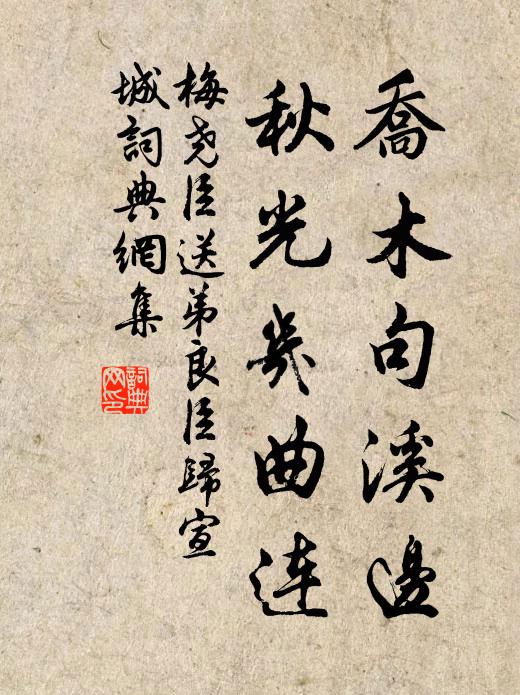 喬木句溪邊
秋光幾曲連
梅堯臣送弟良臣歸宣
城詞典網集
詞典
网印